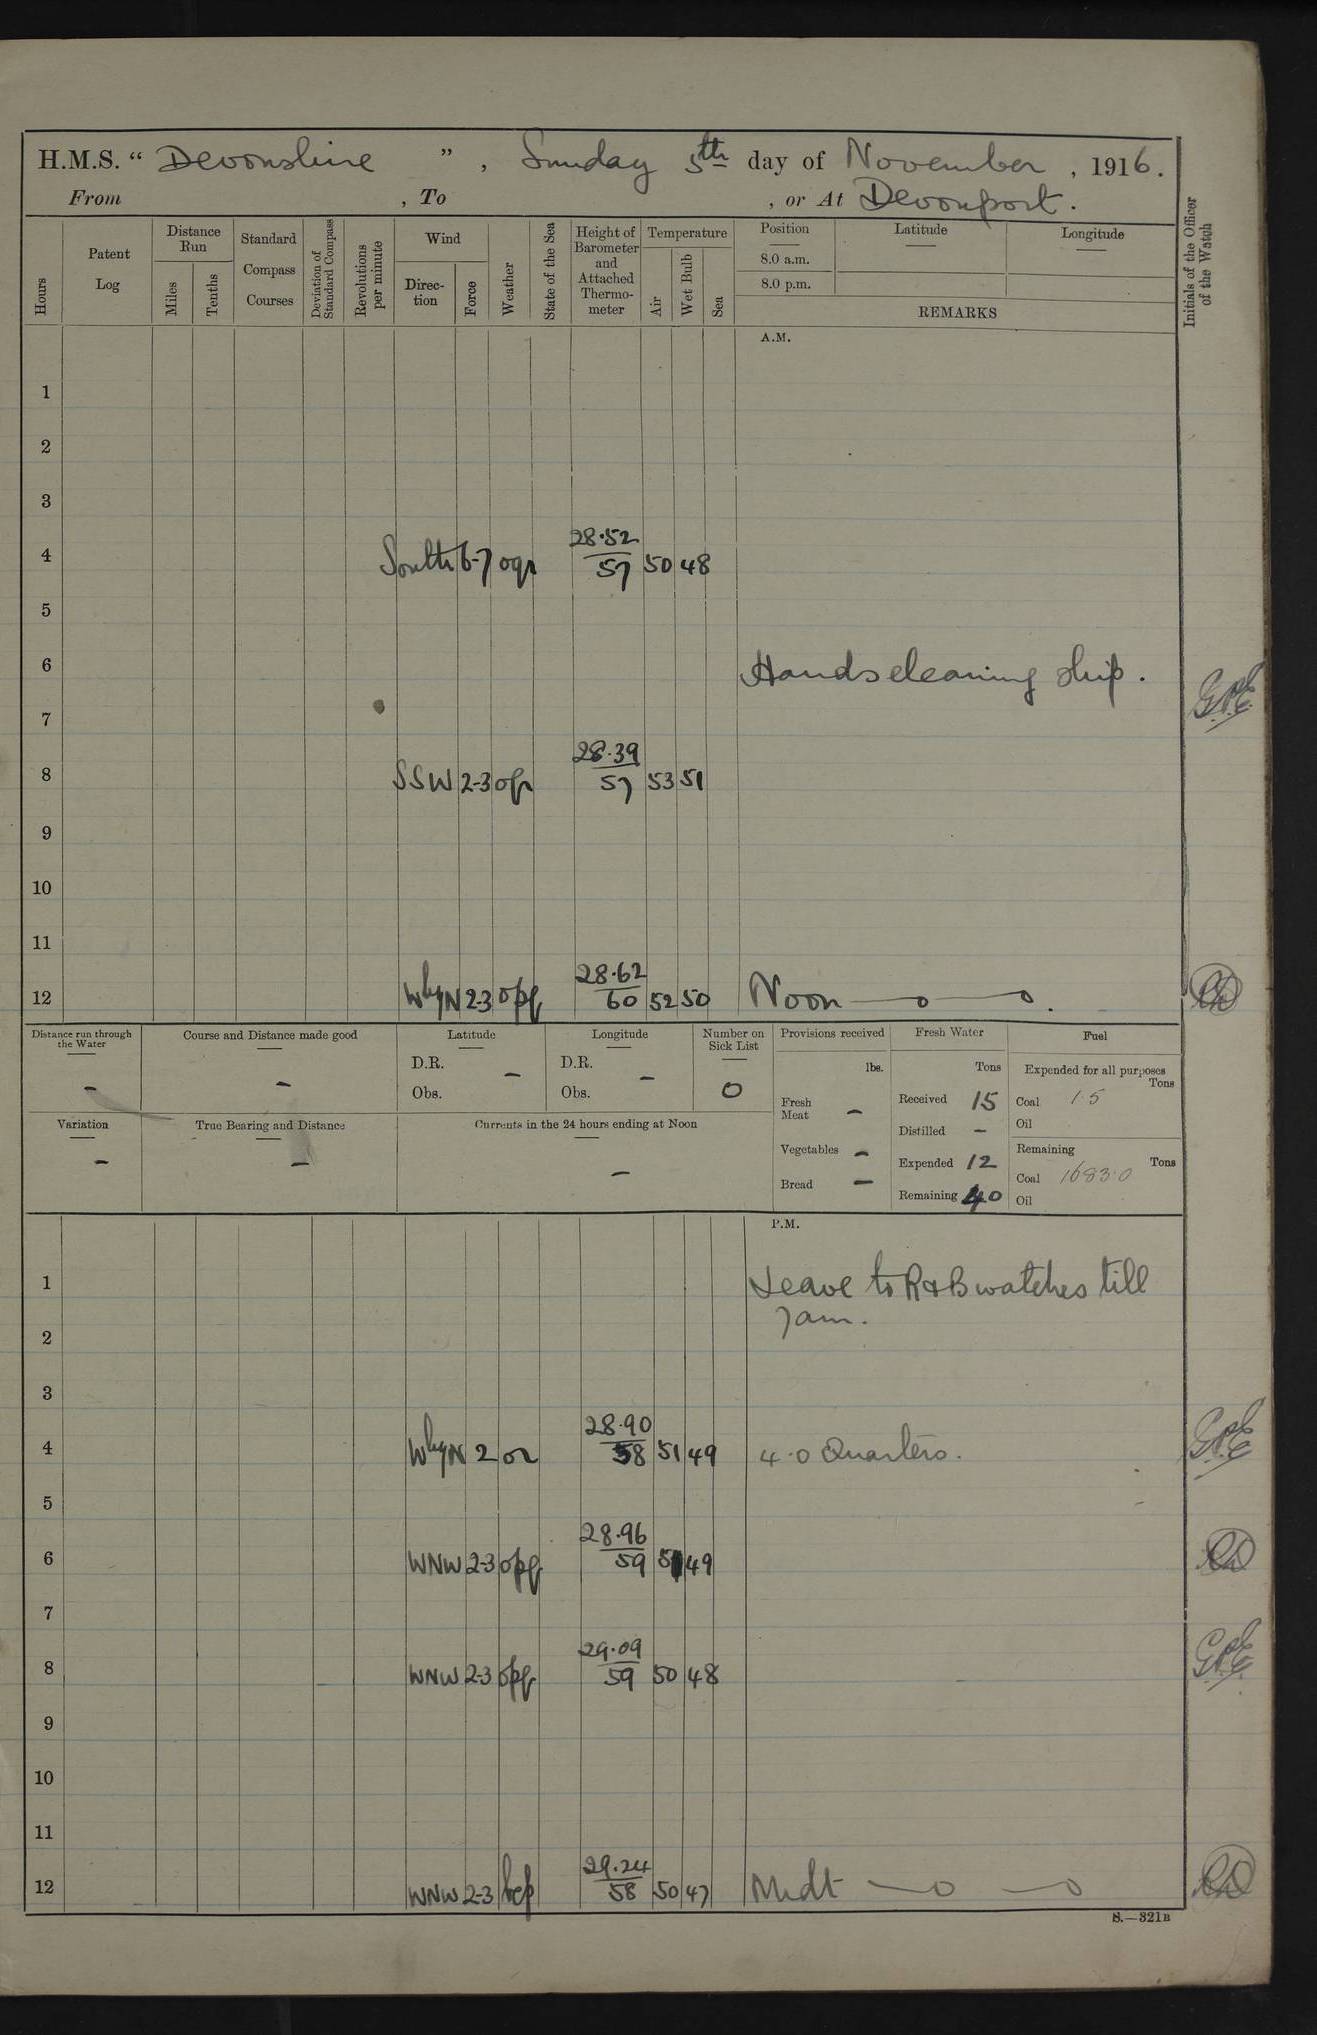 H.M.S. “ Devonshire ” , Sunday 5th day of November , 1916.
From , To , or At Devonport.
Hours
Patent Log
Distance Run
Miles
Tenths
Standard Compass Courses
Deviation of Standard Compass
Revolutions per minute
Wind
Direc-tion
Force
Weather
State of the Sea
Height of Barometer and Attached Thermo-meter
Temperature
Air
Wet Bulb
Sea
Position
8.0 a.m.
8.0 p.m.
Latitude
Longitude
REMARKS
Initials of the Officer of the Watch
A.M.
1
2
3
4 South 6-7 oqr 28.52 57 50 48
5
6 Hands cleaning ship.
7
8 SSW 2-3 28.39 57 53 51
9
10
11
12 WbyN 2-3 opq 28.62 60 52 50 Noon
Distance run through the Water
-
Course and Distance made good
-
Latitude
D.R. -
Obs.
Longitude
D.R. -
Obs.
Number on Sick List
0
Provisions received
lbs.
Fresh Meat -
Vegetables -
Bread -
Fresh Water
Tons
Received 15
Distilled -
Expended 12
Remaining 40
Fuel
Expended for all purposes
Tons
Coal 15
Oil
Remaining
Tons
Coal 1683.0
Oil
Variation
-
True Bearing and Distance
-
Currents in the 24 hours ending at Noon
-
P.M.
1 Leave to R&B watches till
7am.
2
3
4 WbyN 2 or 28.90 58 51 49 4.0 Quarters.
5
6 WNW 2-3 opq 28.96 59 49
7
8 WNW 2-3 opq 29.09 59 50 48
9
10
11
12 WNW 2-3 bcp 29.24 58 50 47 Midt
S.—321B